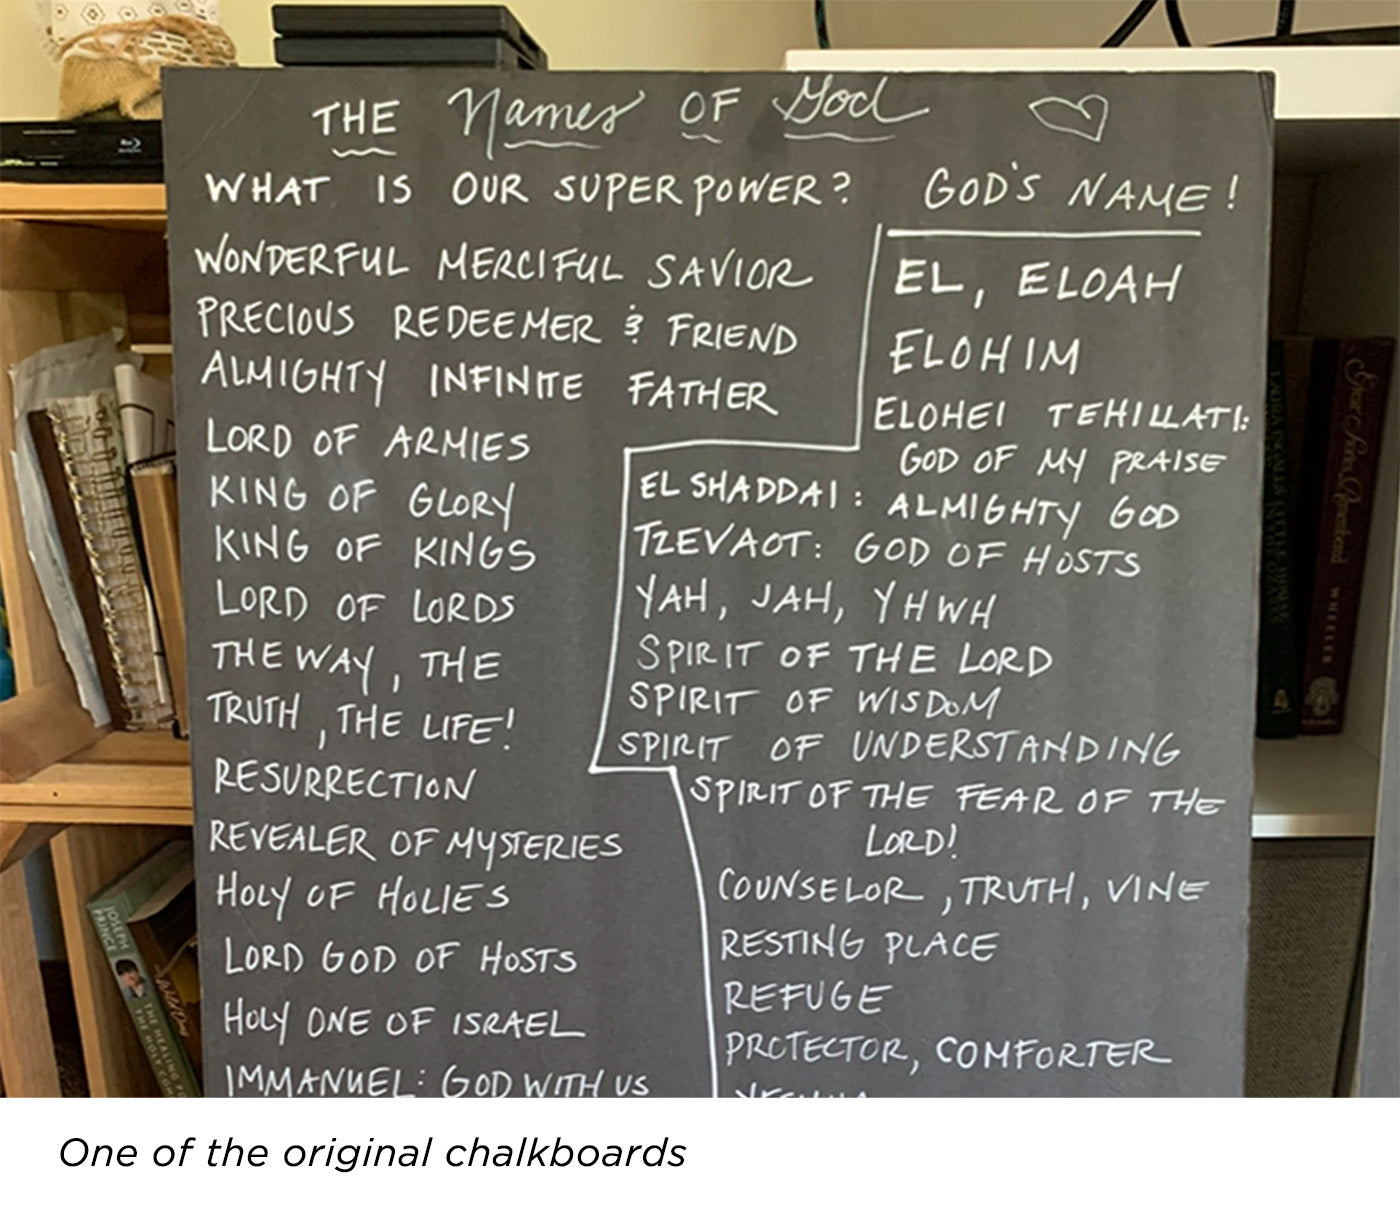 THE Names OF God
WHAT IS OUR SUPERPOWER? GOD'S NAME!
WONDERFUL MERCIFUL SAVIOR
PRECIOUS REDEEMER & FRIEND
ALMIGHTY INFINITE FATHER
LORD OF ARMIES
KING OF GLORY
KING OF KINGS
LORD OF LORDS
THE WAY, THE
TRUTH, THE LIFE!
RESURRECTION
REVEALER OF MYSTERIES
HOLY OF HOLIES
LORD GOD OF HOSTS
HOLY ONE OF ISRAEL
IMMANUEL: GOD WITH US
EL, ELOAH
ELOHIM
ELOHEI TEHILLATI:
GOD OF MY PRAISE
EL SHADDAI: ALMIGHTY GOD
TZEVAOT: GOD OF HOSTS
YAH, JAH, YHWH
SPIRIT OF THE LORD
SPIRIT OF WISDOM
SPIRIT OF UNDERSTANDING
SPIRIT OF THE FEAR OF THE
LORD!
COUNSELOR, TRUTH, VINE
RESTING PLACE
REFUGE
PROTECTOR, COMFORTER
JOSEPH
PRINCE
WHEELER
One of the original chalkboards